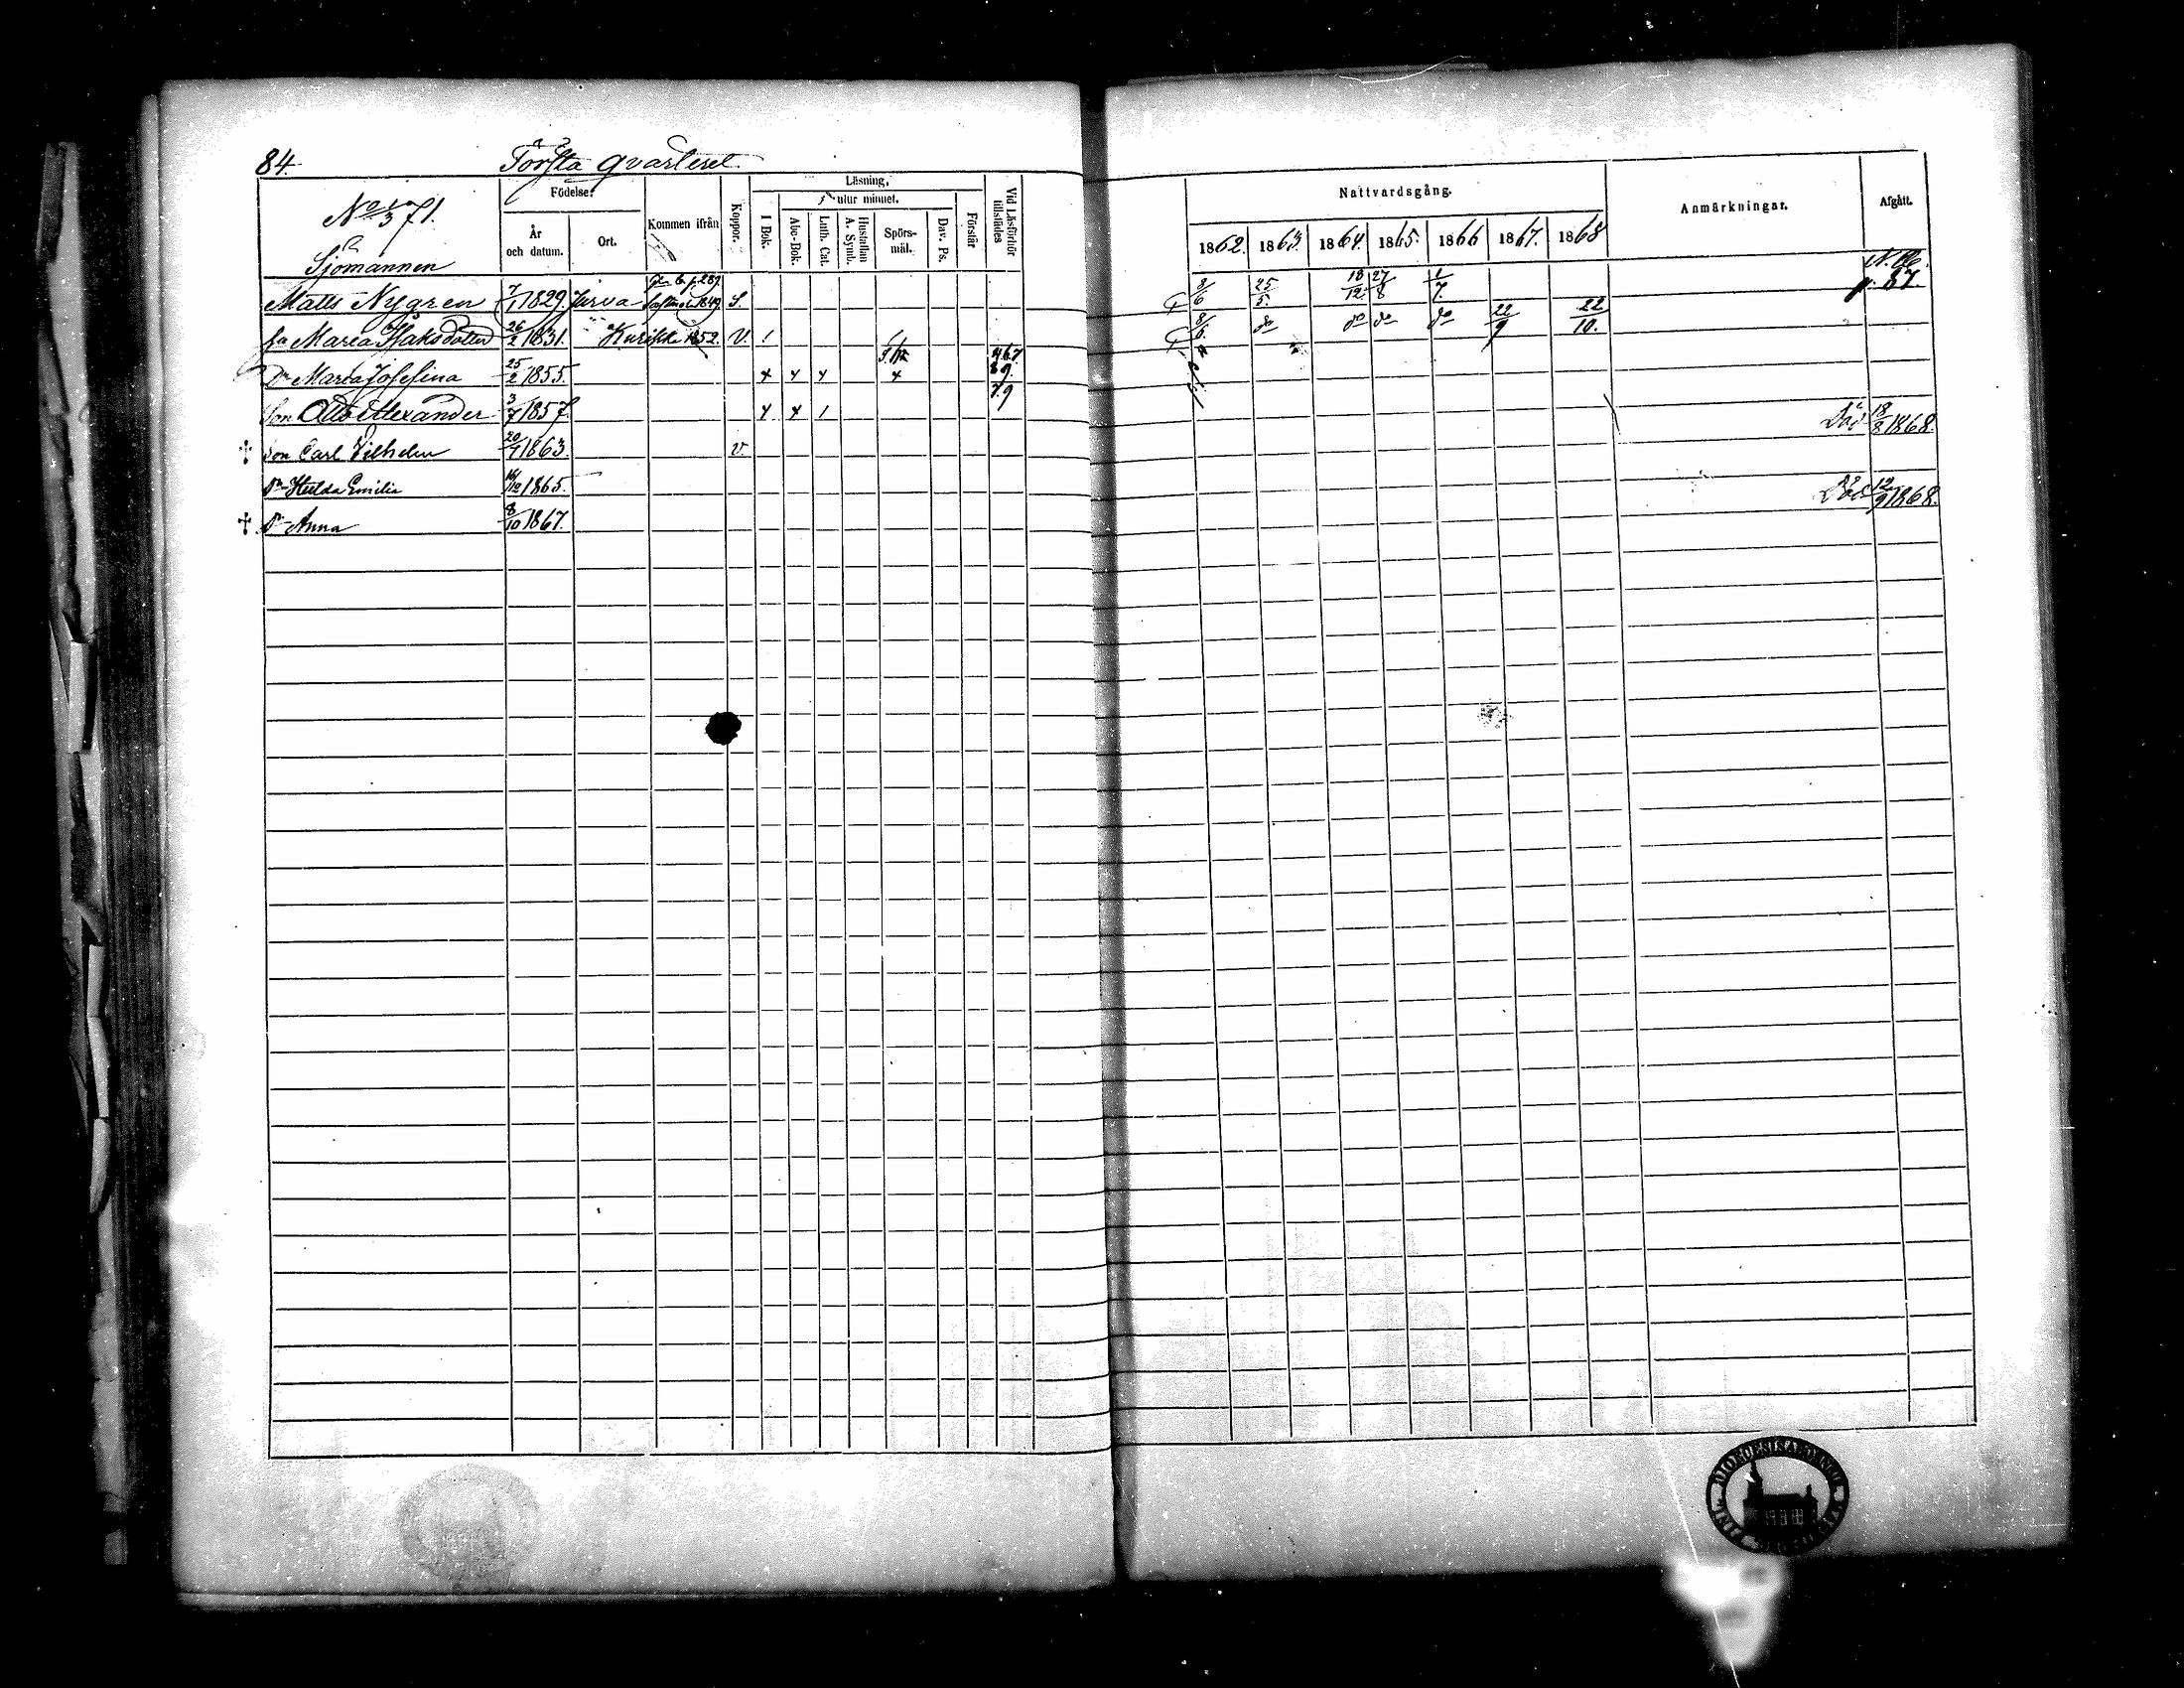 84.
Första qvarteret
No 71.
Födelse.
År och datum.
Ort.
Kommen ifrån
Koppor.
Läsning,
utur minnet.
I Bok.
Abc-Bok.
Luth. Cat.
Hustaflan A. Symb.
Spörsmål.
Dav. Ps.
Förstår
Vid Läsförhör tillstädes
Nattvardsgång.
1862. 1863. 1864. 1865. 1866 1867. 1868
Anmärkningar.
Afgått.
Sjömannen
Matts Nygren 7/1 1829. Jurva 1849. S. 8/6 25/5. 18/12. 27/8 1/7. N. B. p. 87.
Maria Isaksdotter 26/2 1831. 1852. V. 8/6. do do do do 22/9 22/10.
Dr Maria Josefina 25/2 1855.
Son Otto Alexander 3/7 1857.
† Son Carl Vilhelm 20/7 1863. v. Död 18/8 1868.
Dr Hulda Emilia 1865.
† Dr Anna 8/10 1867. Död 12/9 1868.